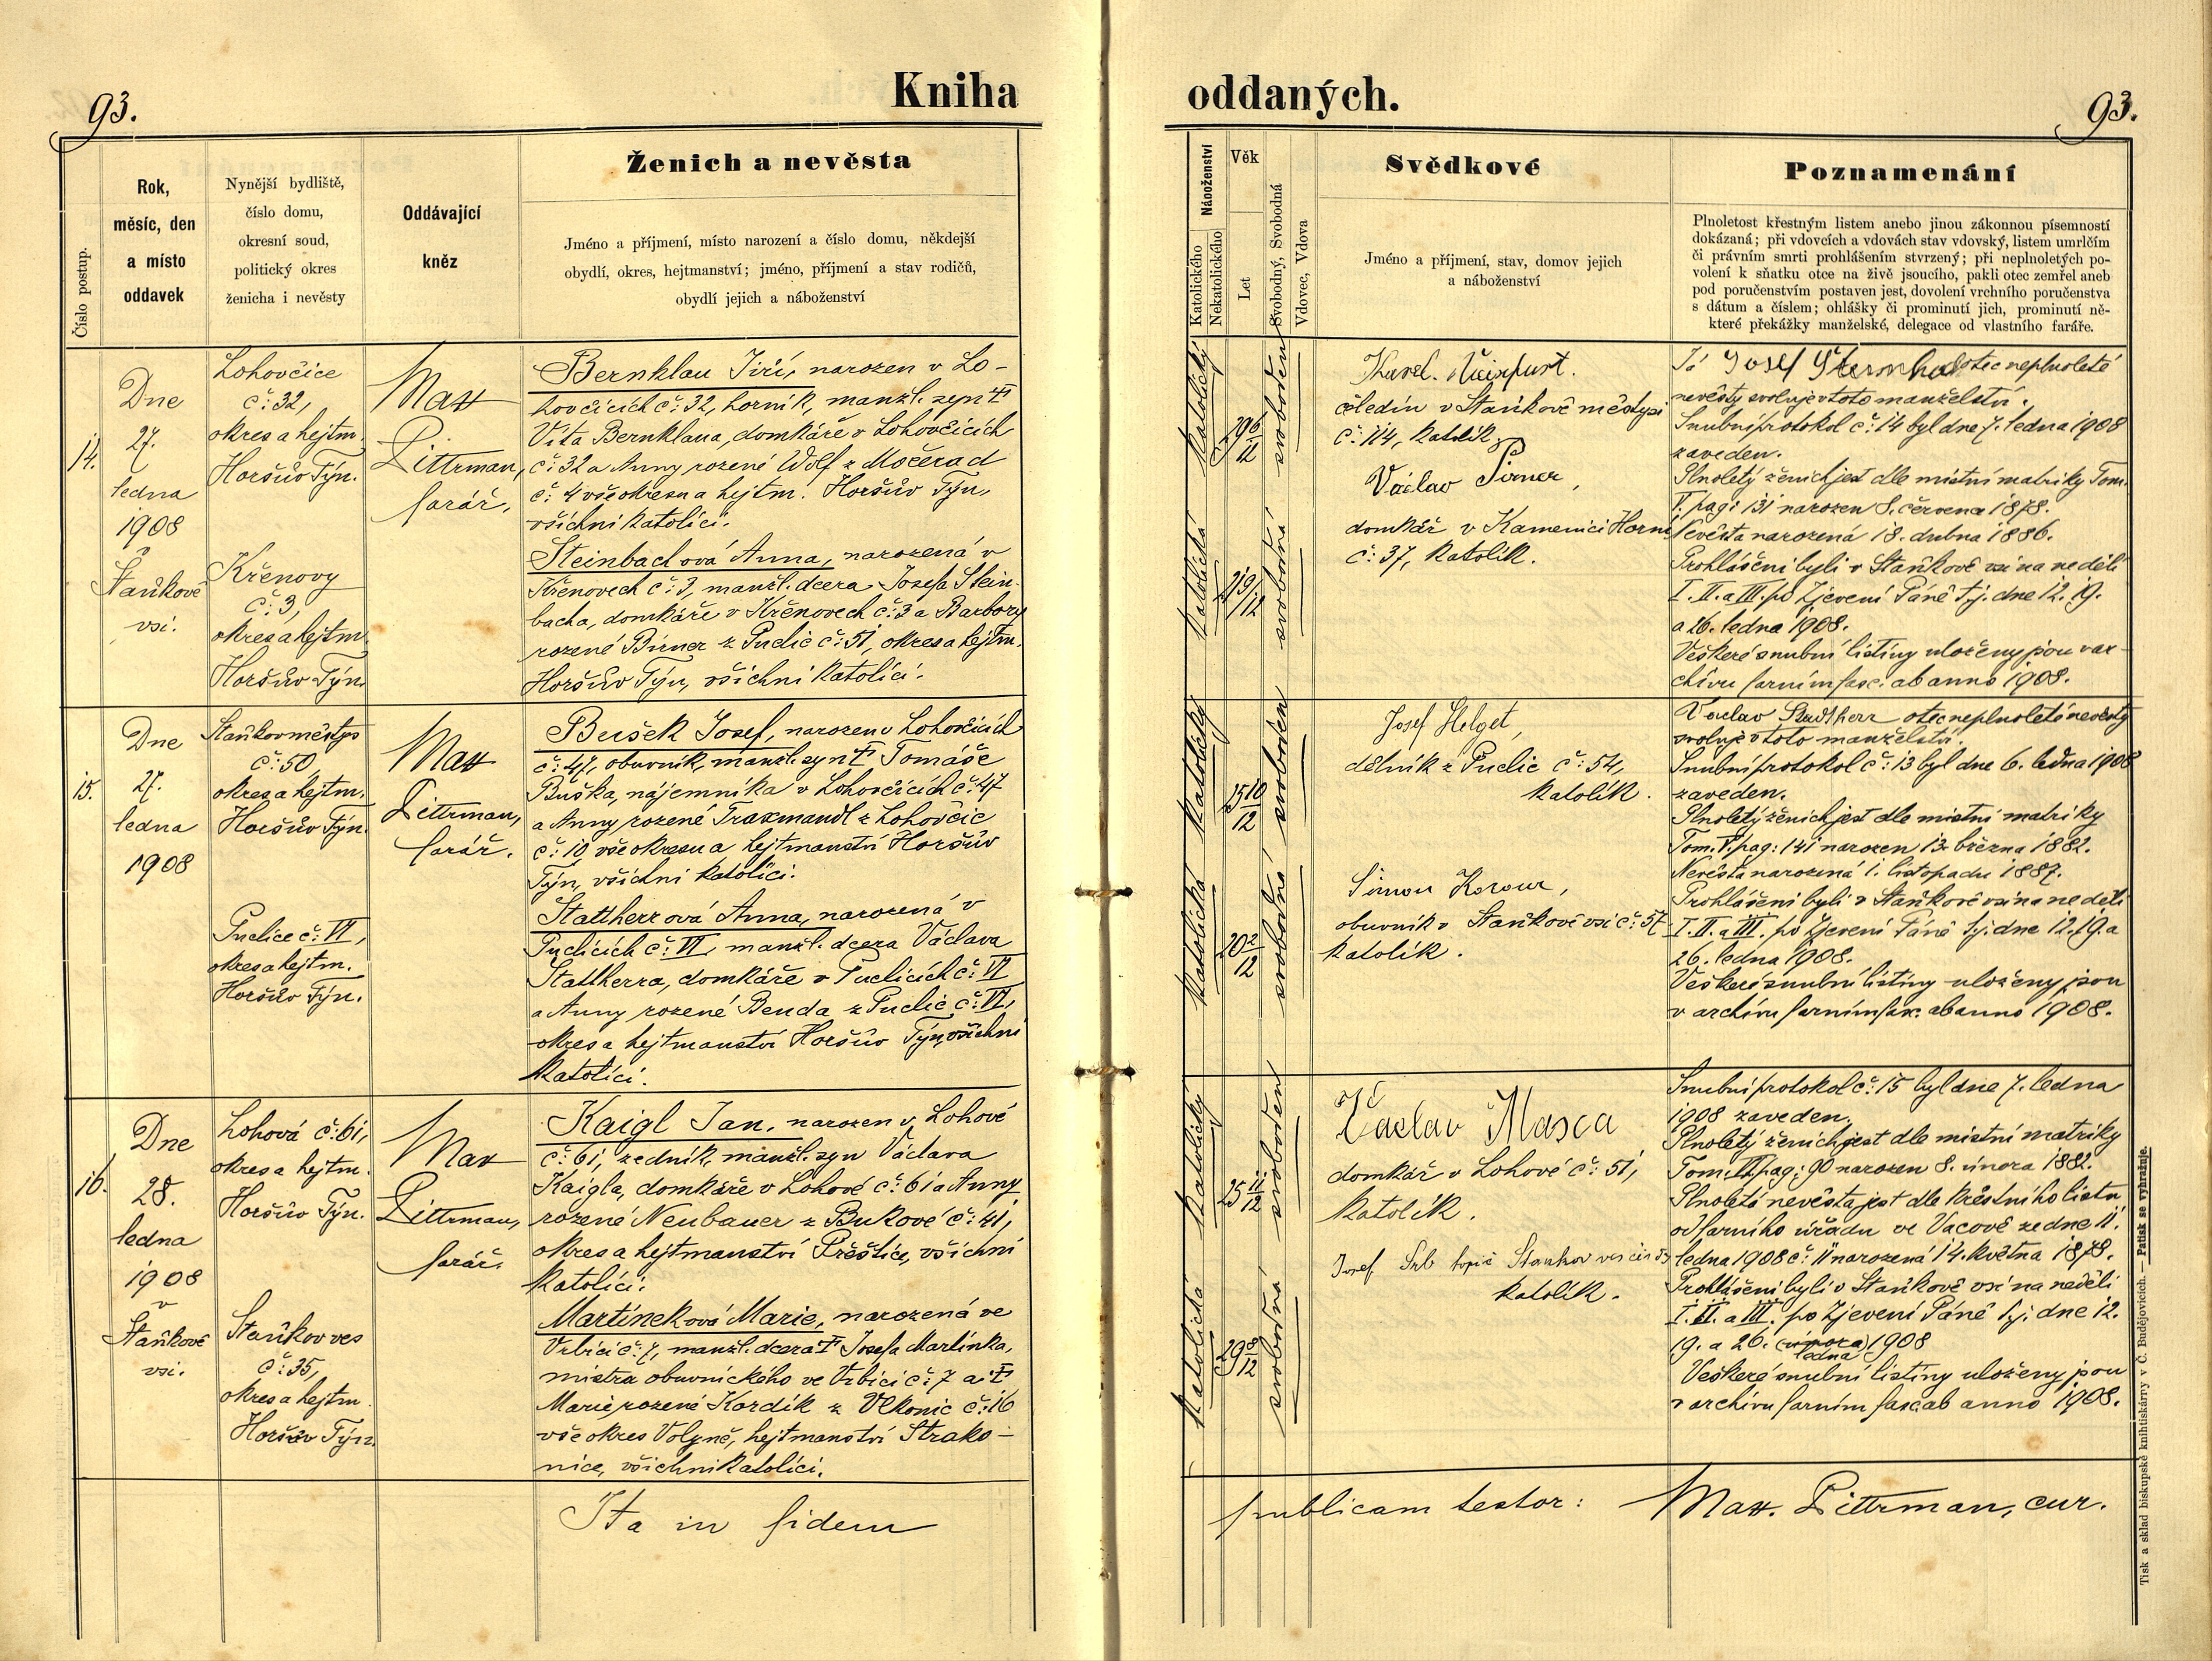 93.
Kniha
oddaných.
93.
Číslo postup.
Rok,
měsíc, den
a místo
oddavek
Nynější bydliště,
číslo domu,
okresní soud,
politický okres
ženicha i nevěsty
Oddávající
kněz
Ženich a nevěsta
Jméno a příjmení, místo narození a číslo domu, někdejší
obydlí, okres, hejtmanství; jméno, příjmení a stav rodičů,
obydlí jejich a náboženství
Náboženství
Katolického
Nekatolického
Věk
Let
Svobodný, Svobodná
Vdovec, Vdova
Svědkové
Jméno a příjmení, stav, domov jejich
a náboženství
Poznamenání
Plnoletost křestným listem anebo jinou zákonnou písemností
dokázaná; při vdovcích a vdovách stav vdovský, listem umrlčím
či právním smrti prohlášením stvrzený; při neplnoletých po-
volení k sňatku otce na živě jsoucího, pakli otec zemřel aneb
pod poručenstvím postaven jest, dovolení vrchního poručenstva
s dátum a číslem; ohlášky či prominutí jich, prominutí ně-
které překážky manželské, delegace od vlastního faráře.
14.
Dne
27.
ledna
1908
v
Staňkově
vsi.
Lohovčice
č: 32,
okres a hejtm.
Horšův Týn.
Křenovy
č: 3,
okres a hejtm.
Horšův Týn.
Max
Pittrman,
farář.
Bernklau Jiří, narozen v Lo-
hovčicích č: 32, horník, manžl. syn †
Víta Bernklaua, domkáře v Lohovčicích
č: 32 a Anny rozené Wolf z Močerad
č: 4 vše okresu a hejtm. Horšův Týn,
všichni katolíci.
Steinbachová Anna, narozená v
Křenovech č: 3, manžl. dcera Josefa Stein-
bacha, domkáře v Křenovech č: 3 a Barbory
rozené Birner z Puclic č: 51, okres a hejtm.
Horšův Týn, všichni katolíci.
katolický
29 6/12
svoboden
katolická
21 9/12
svobodná
Karel
čeledín v Staňkově městysi
č: 114, katolík
Václav Pirner,
domkář v Kamenici Horní
č: 37, katolík.
Já Josef otec neplnoleté
nevěsty svoluje v toto manželství.
Snubní protokol č: 14 byl dne 7. ledna 1908
zaveden.
Plnoletý ženich jest dle místní matriky Tom.
V. pag: 131 narozen 8. června 1878.
Nevěsta narozená 18. dubna 1886.
Prohlášeni byli v Staňkově vsi na neděli
I. II. a III. po Zjevení Páně tj. dne 12. 19.
a 26. ledna 1908.
Veškeré snubní listiny uloženy jsou v ar-
chívu farním fasc. ab anno 1908.
15.
Dne
27.
ledna
1908
Staňkov městys
č: 50
okres a hejtm.
Horšův Týn.
Puclice č: VI,
okres a hejtm.
Horšův Týn.
Max
Pittrman,
farář.
Bušek Josef, narozen v Lohovčicích
č: 47, obuvník, manžl. syn † Tomáše
Buška, nájemníka v Lohovčicích č: 47
a Anny rozené Traxmandl z Lohovčic
č: 10, vše okresu a hejtmanství Horšův
Týn, všichni katolíci.
Stattherrová Anna, narozená v
Puclicích č: VI, manžl. dcera Václava
Stattherra, domkáře v Puclicích č: VI
a Anny rozené Benda z Puclic č: VI,
okres a hejtmanství Horšův Týn, všichni
katolíci.
katolický
25 10/12
svoboden
katolická
20 2/12
svobodná
Josef Helget,
dělník z Puclic č: 54,
katolík.
Šimon
obuvník v Staňkově vsi č: 57
katolík.
Vaclav Stadtherr otec neplnoleté nevěsty
svoluje v toto manželství.
Snubní protokol č: 13 byl dne 6. ledna 1908
zaveden.
Plnoletý ženich jest dle místní matriky
Tom. V. pag: 141 narozen 13. března 1882.
Nevěsta narozená 1. listopadu 1887.
Prohlášeni byli v Staňkově vsi na neděli
I. II. a III. po Zjevení Páně tj. dne 12. 19. a
26. ledna 1908.
Veškeré snubní listiny uloženy jsou
v archívu farním fasc. ab anno 1908.
16.
Dne
28.
ledna
1908
v
Staňkově
vsi.
Lohová č: 61,
okres a hejtm.
Horšův Týn.
Staňkov ves
č: 35,
okres a hejtm.
Horšův Týn.
Max
Pittrman,
farář.
Kaigl Jan, narozen v Lohové
č: 61, zedník, manžl. syn Václava
Kaigla, domkáře v Lohové č: 61 a Anny
rozené Neubauer z Bukové č: 41,
okres a hejtmanství Přeštice, všichni
katolíci.
Martínková Marie, narozená ve
Vrbici č: 7, manžl. dcera † Josefa Martínka,
mistra obuvnického ve Vrbici č: 7 a †
Marie rozené Kordík z Vlkonic č: 16
vše okres Volyně, hejtmanství Strako-
nice, všichni katolíci.
katolický
25 11/12
svoboden
katolická
29 8/12
svobodná
Václav Masca
domkář v Lohové č: 51,
katolík.
Josef Srb topič Stankov ves čís
katolík.
Snubní protokol č: 15 byl dne 7. ledna
1908 zaveden.
Plnoletý ženich jest dle místní matriky
Tom. pag: 90 narozen 8. února 1882.
Plnoletá nevěsta jest dle křestního listu
od farního úřadu ve Vacově ze dne 11.
ledna 1908 č: 11 narozená 14. května 1878.
Prohlášeni byli v Staňkově vsi na neděli
I. II. a III. po Zjevení Páně tj. dne 12.
19. a 26. (února) 1908
ledna
Veškeré snubní listiny uloženy jsou
v archívu farním fasc. ab anno 1908.
Ita in fidem
publicam testor: Max. Pittrman, cur.
Tisk a sklad biskupské knihtiskárny v Č. Budějovicích. — Patisk se vyhražuje.